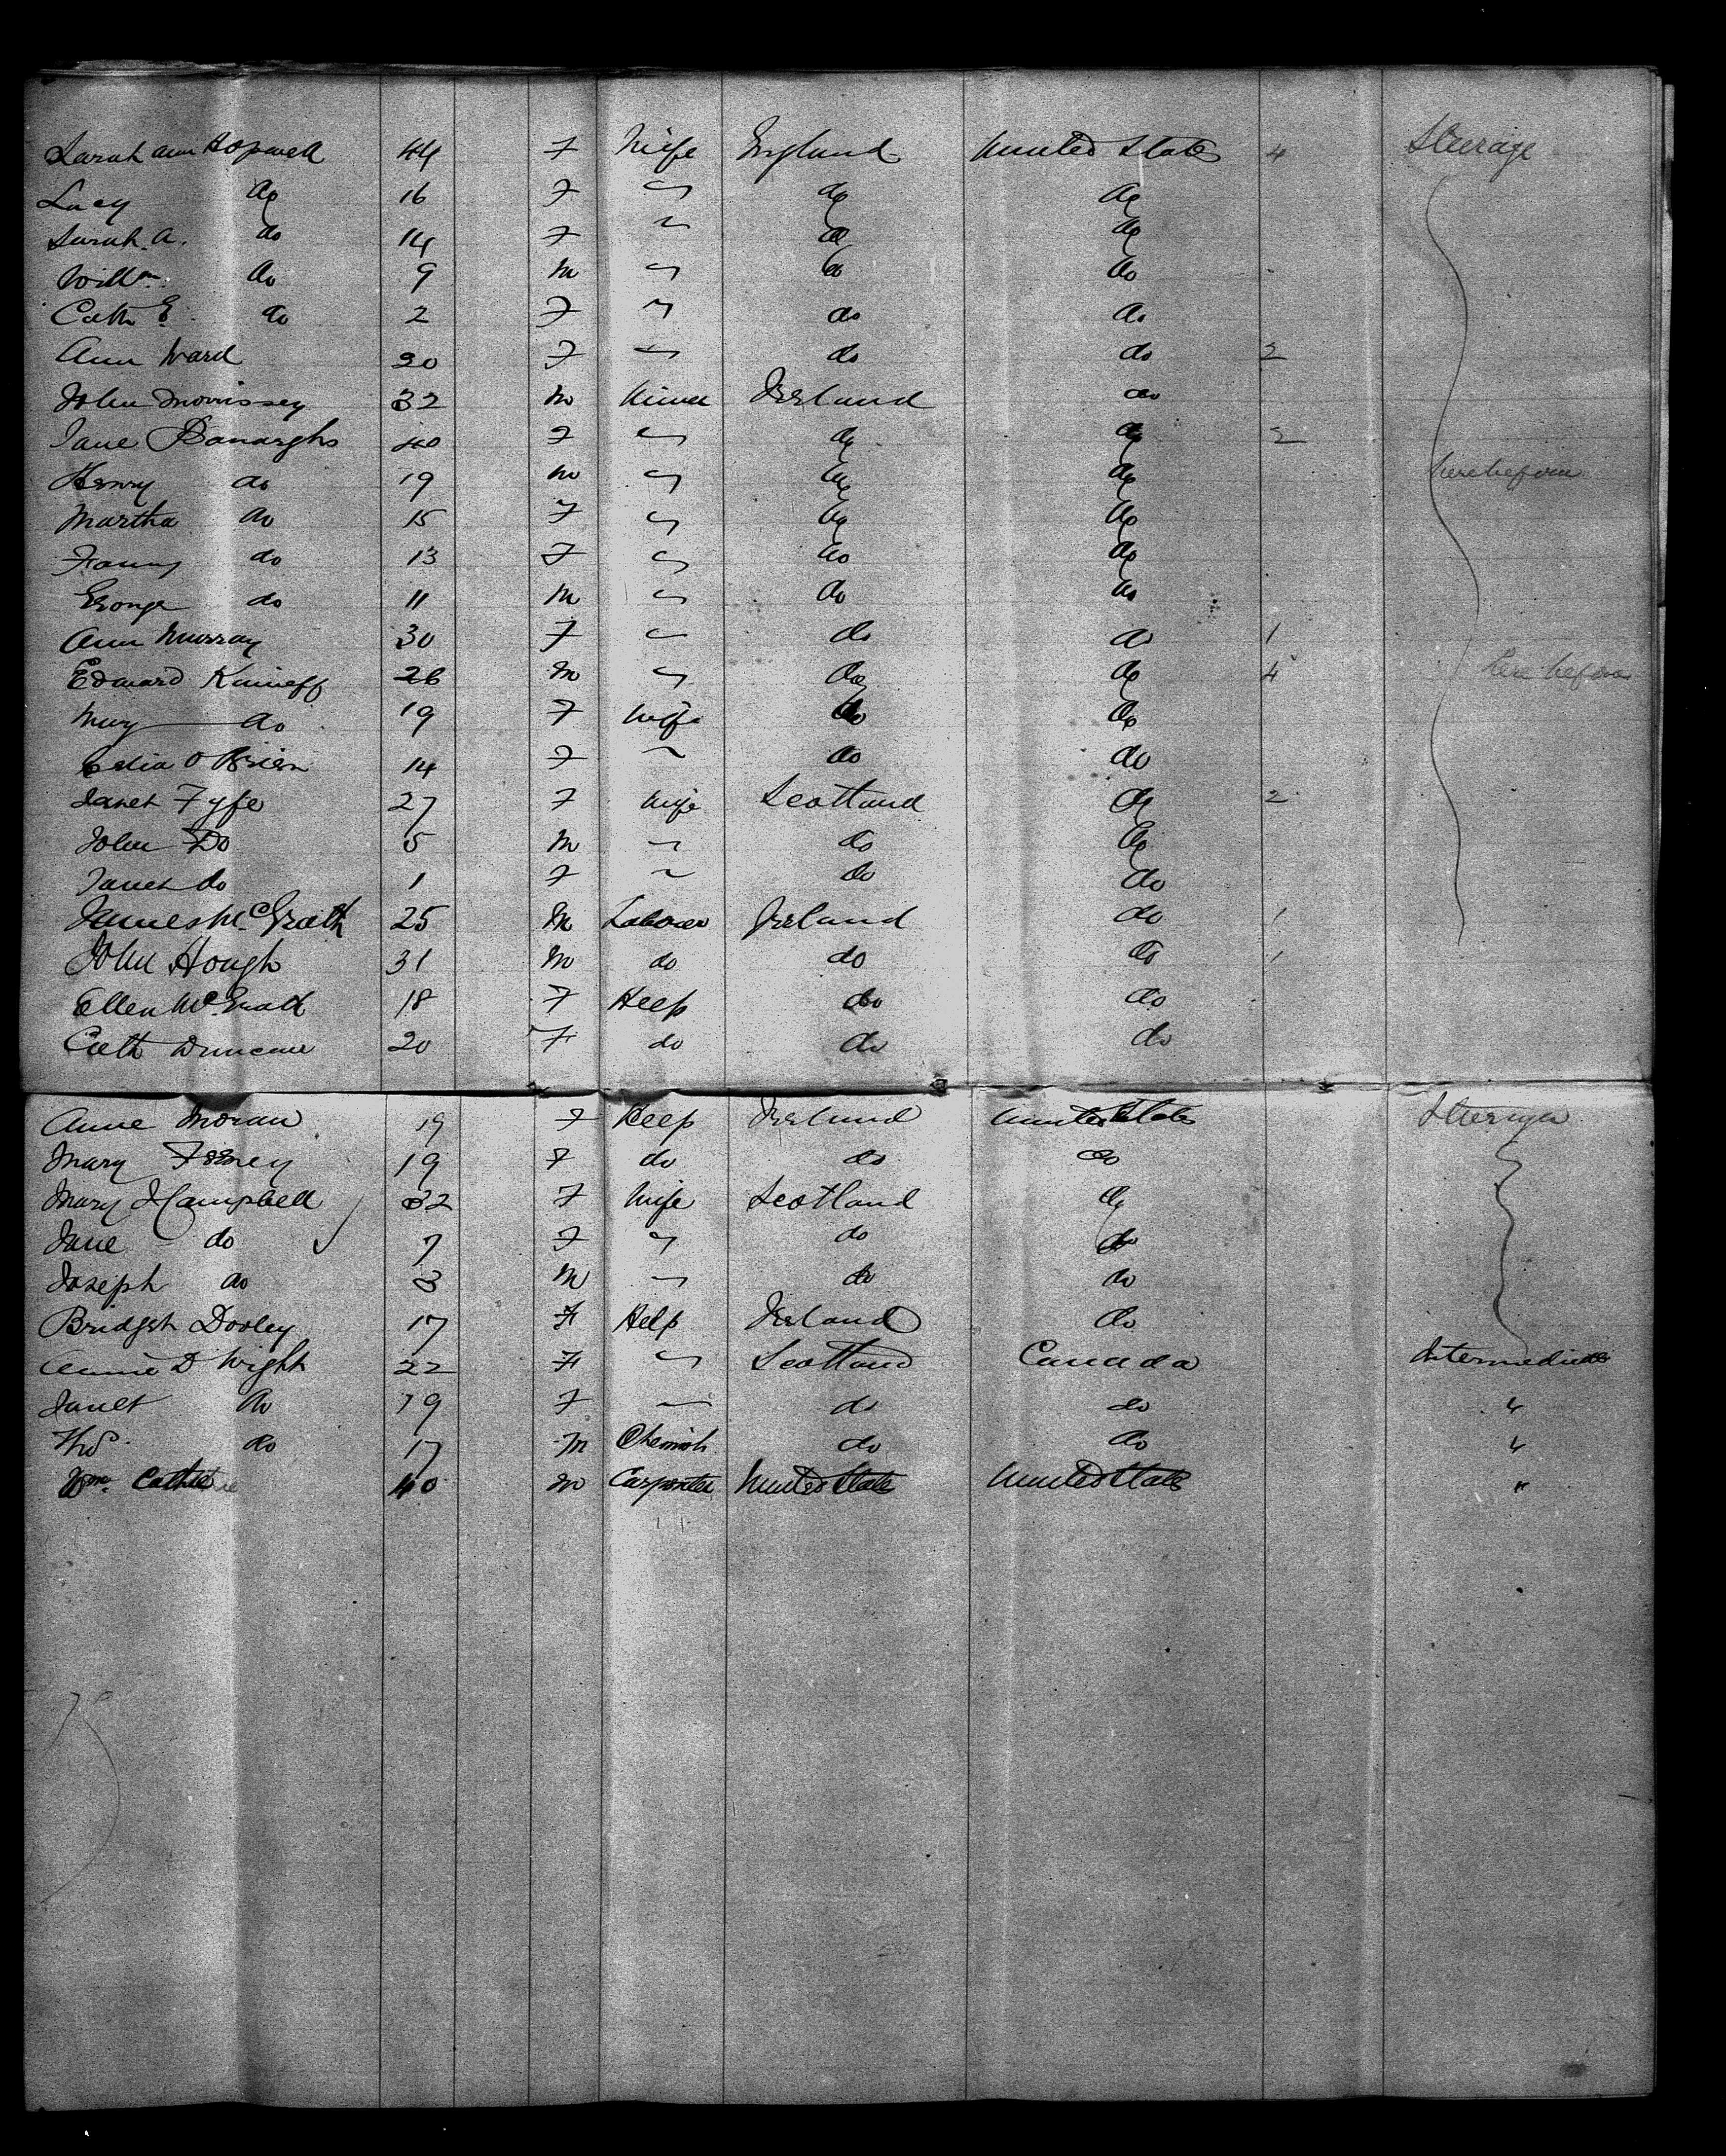 Sarah Ann Hopwell 44 F Wife England United States 4 Steerage
Lucy do 16 F " do do
Sarah A. do 14 F " do do
Willm do 9 m " do do
Cath E. do 2 F " do do
Ann Ward 20 F " do do 2
John Morrissey 32 m Ireland do
Jane 40 F " do do 2
Henry do 19 m " do do here before
Martha do 15 F " do do
Fanny do 13 F " do do
George do 11 m " do do
Ann Murray 30 F " do do 1
Edward 26 m " do do 4 here before
Mary do 19 F Wife do do
Celia O Brien 14 F " do do
Janet Fyfe 27 F Wife Scotland do 2
John Do 5 m " do do
Janet do 1 F " do do
James McGrath 25 m Laborer Ireland do 1
John Hough 31 m do do do 1
Ellen McGrath 18 F Help do do
Cath Duncan 20 F do do do
Anne Moran 19 F Help Ireland United States Steerage
Mary 19 F do do do
Mary J Campbell 32 F Wife Scotland do
Jane do 7 F " do do
Joseph do 3 m " do do
Bridget Dooley 17 F Help Ireland do
Annie D Wight 22 F " Scotland Canada Intermediate
Janet do 19 F " do do "
Thos do 17 m Chemist do do "
Wm. 40 m Carpenter United States United States "